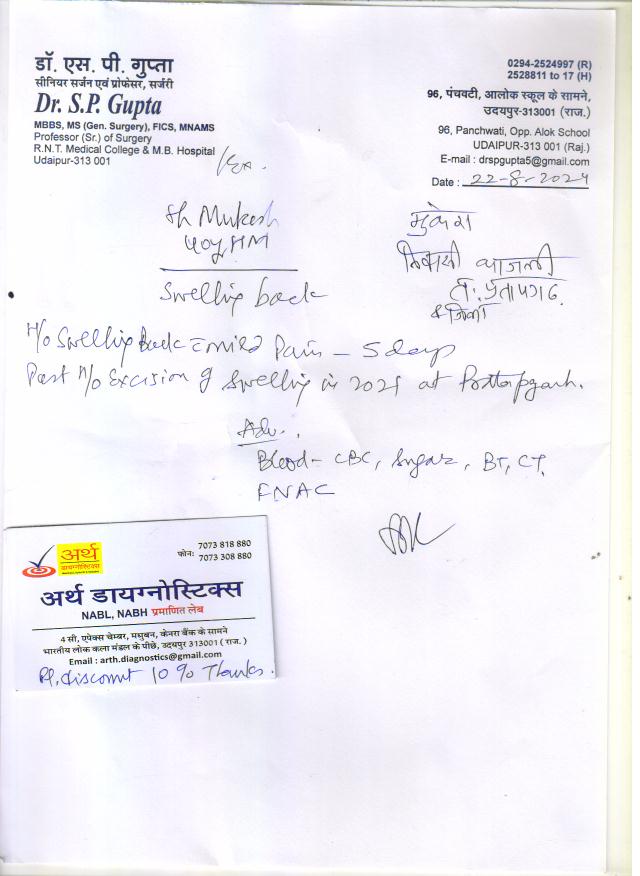 डॉ. एस. पी. गुप्ता
सीनियर सर्जन एवं प्रोफेसर, सर्जरी
Dr. S.P. Gupta
MBBS, MS (Gen. Surgery), FICS, MNAMS
Professor (Sr.) of Surgery
R.N.T. Medical College & M.B. Hospital
Udaipur-313 001
0294-2524997 (R)
2528811 to 17 (H)
96, पंचवटी, आलोक स्कूल के सामने,
उदयपुर-313001 (राज.)
96, Panchwati, Opp. Alok School
UDAIPUR-313 001 (Raj.)
E-mail : drspgupta5@gmail.com
Date : 22-8-2024
Sh Mukesh
मुकेश
निवासी
प्रतापगढ़
Swelling back
H/o Swelling Back c mild Pain - 5 days
Past H/o Excision of Swelling in 2021 at Pratapgarh.
Adv.
Blood- CBC, Sugar, BT, CT,
FNAC
अर्थ
डायग्नोस्टिक्स
फोन: 7073 818 880
7073 308 880
अर्थ डायग्नोस्टिक्स
NABL, NABH प्रमाणित लेब
4 सी, एपेक्स चेम्बर, मधुबन, केनरा बैंक के सामने
भारतीय लोक कला मंडल के पीछे, उदयपुर 313001 ( राज. )
Email : arth.diagnostics@gmail.com
Pl. discount 10 % Thanks.